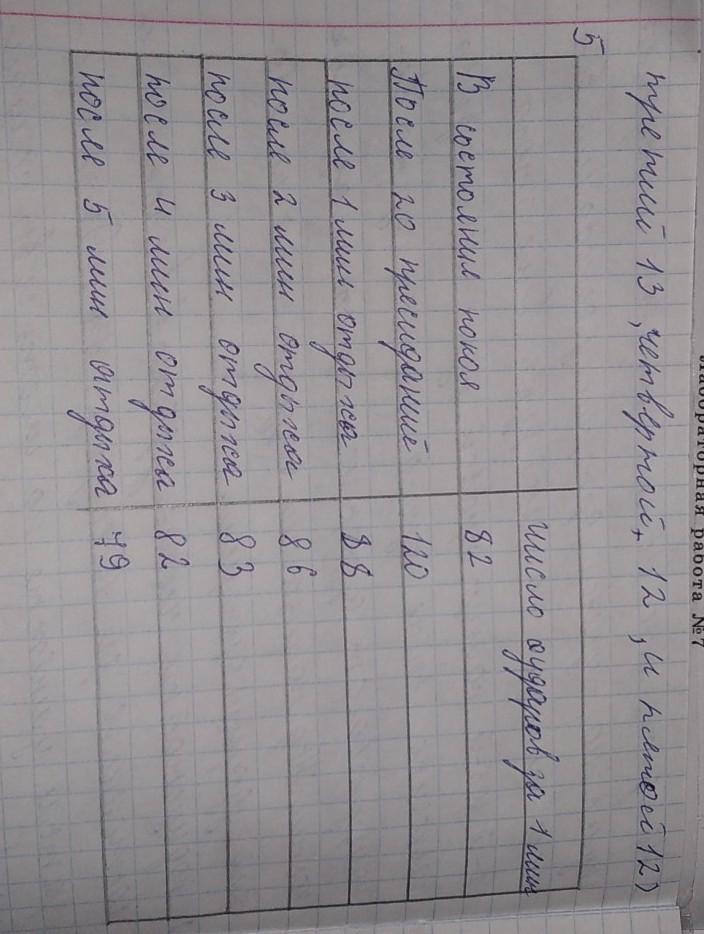 Лабораторная работа №7
третий 13, четвертой, 12, и пятой 12)
5
число оударов за 1 мин
В состояния покоя 82
После 20 пресидание 120
после 1 мин отдыха 88
после 2 мин отдыха 86
после 3 мин отдыха 83
после 4 мин отдыха 82
после 5 мин отдыха 79